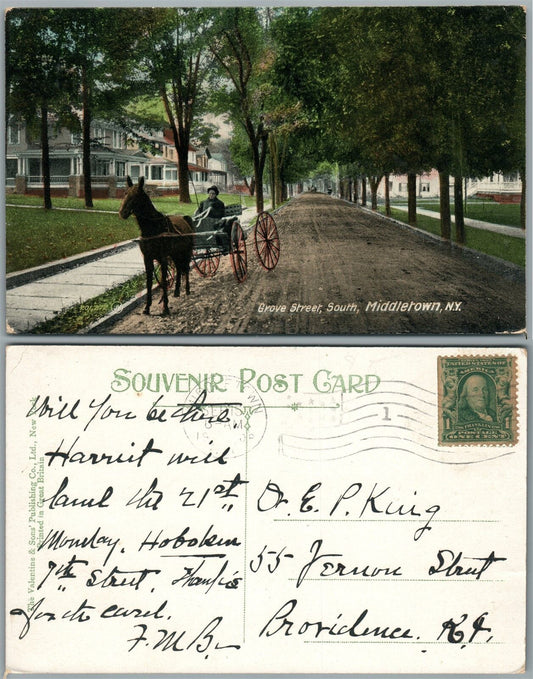 Grove Street, South, Middletown, N.Y.
SOUVENIR POST CARD
The Valentine & Sons' Publishing Co., Ltd., New York
Printed in Great Britain
UNITED STATES OF AMERICA
1 1
FRANKLIN
POSTAGE
ONE CENT
1
Will you be here.
Harriet will
land the 21st
Monday. Hoboken
7th Street, Thanks
for the card.
F.M.B.
Dr. E. P. King
55 Vernon Street
Providence. R.I.